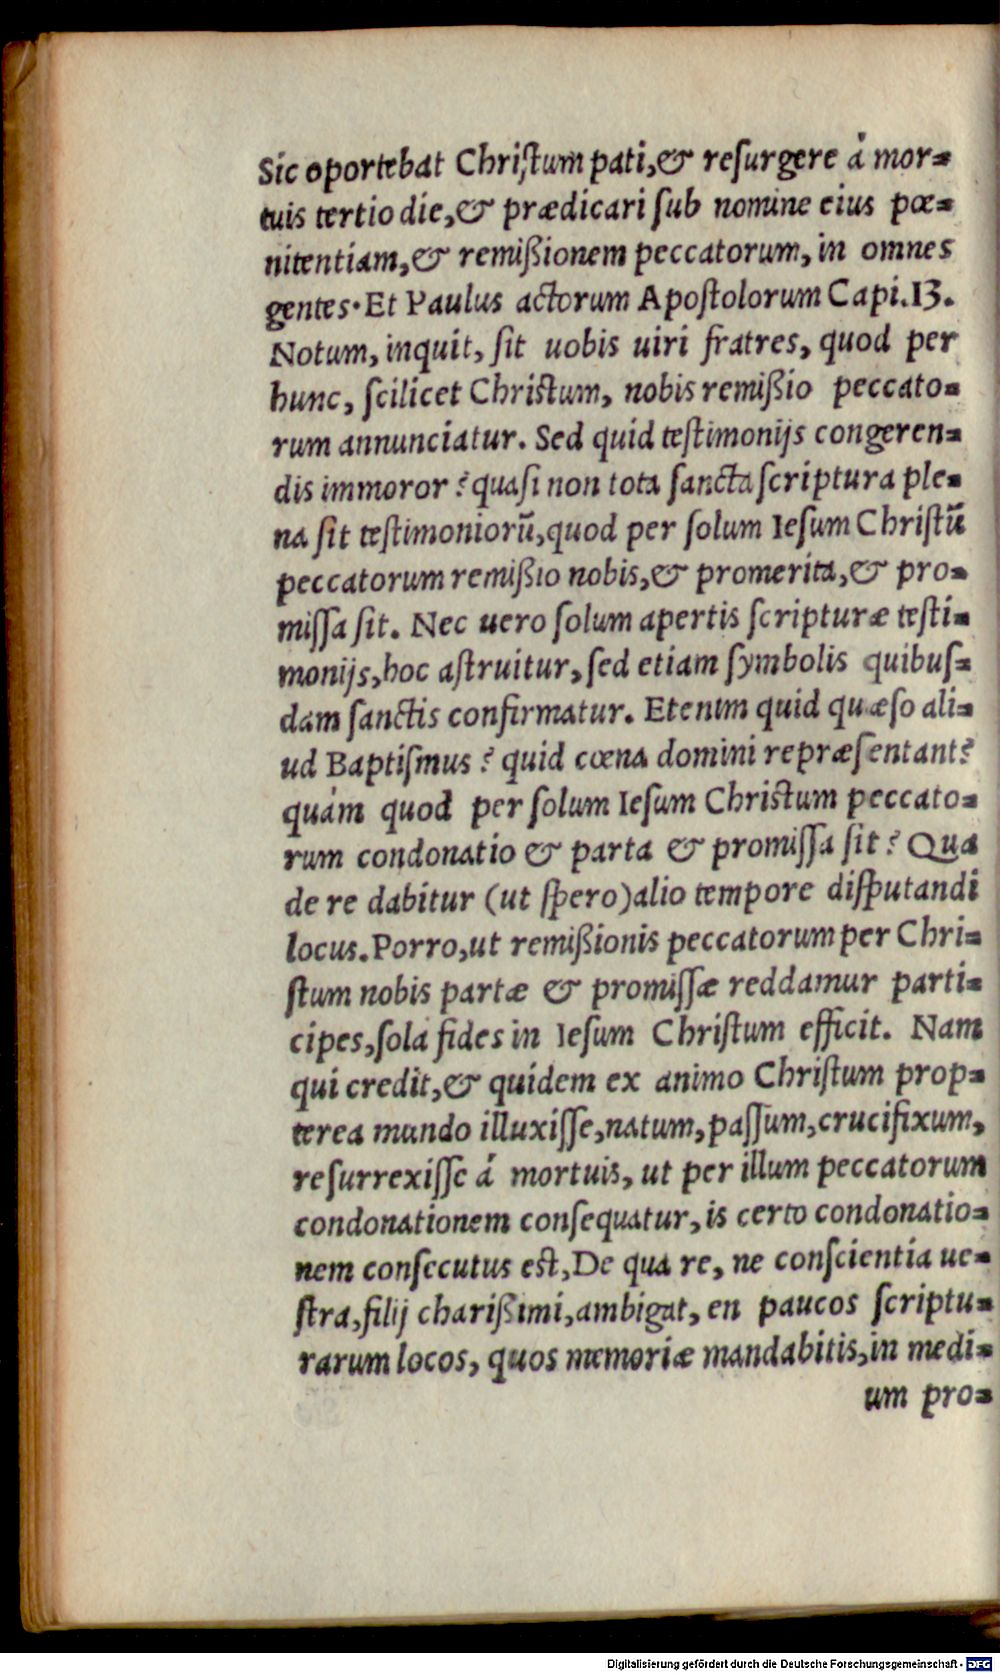 Sic oportebat Chriſtum pati,& reſurgere á mor=
tuis tertio die,& prædicari ſub nomine eius pœ=
nitentiam,& remißionem peccatorum, in omnes
gentes. Et Paulus actorum Apoſtolorum Capi.13.
Notum, inquit, ſit uobis uiri fratres, quod per
hunc, ſcilicet Chriſtum, nobis remißio peccato=
rum annunciatur. Sed quid teſtimonijs congeren=
dis immoror? quaſi non tota ſancta ſcriptura ple=
na ſit teſtimoniorū,quod per ſolum Ieſum Chriſtū
peccatorum remißio nobis,& promerita,& pro=
miſſa ſit. Nec uero ſolum apertis ſcripturæ teſti=
monijs,hoc aſtruitur, ſed etiam ſymbolis quibuſ=
dam ſanctis confirmatur. Etenim quid quæſo ali=
ud Baptiſmus? quid cœna domini repræſentant?
quám quod per ſolum Ieſum Chriſtum peccato=
rum condonatio & parta & promiſſa ſit? Qua
de re dabitur (ut ſpero)alio tempore diſputandi
locus. Porro,ut remißionis peccatorum per Chri=
ſtum nobis partæ & promiſſæ reddamur parti=
cipes,ſola fides in Ieſum Chriſtum efficit. Nam
qui credit,& quidem ex animo Chriſtum prop=
terea mundo illuxiſſe,natum,paſſum,crucifixum,
reſurrexiſſe á mortuis, ut per illum peccatorum
condonationem conſequatur, is certo condonatio=
nem conſecutus eſt,De qua re, ne conſcientia ue=
ſtra,filij charißimi,ambigat, en paucos ſcriptu=
rarum locos, quos memoriæ mandabitis,in medi=
um pro=
Digitalisierung gefördert durch die Deutsche Forschungsgemeinschaft - DFG